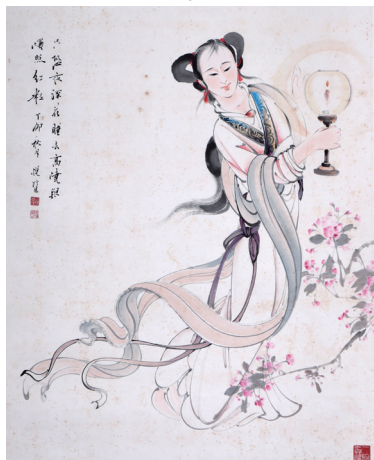 只恐夜深花睡去高燒銀
燭照紅粧丁卯秋